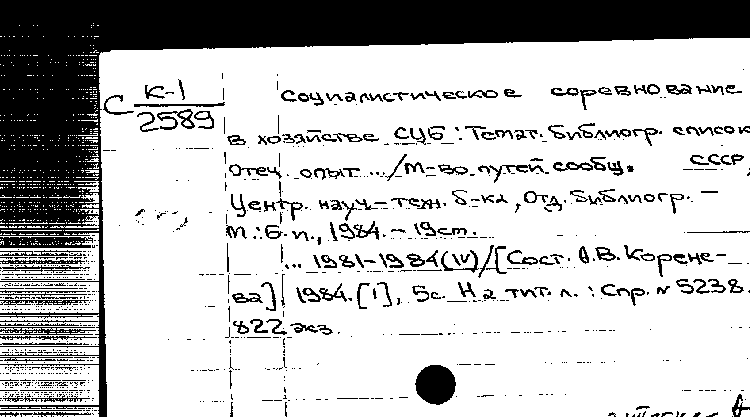 С К-1
2589
Социалистическое соревнование
в хозяйстве СЦБ : Темат. библиогр. список
Отеч. опыт .../М-во путей сообщ. СССР,
Центр. науч-техн. б-ка, Отд. библиогр. –
М.: Б. и., 1984. – 19см.
... 1981-1984(IV)/[Сост. А.В. Корене-
ва]. 1984. [1], 5с. На тит. л. : Спр. N 5238.
822 экз.